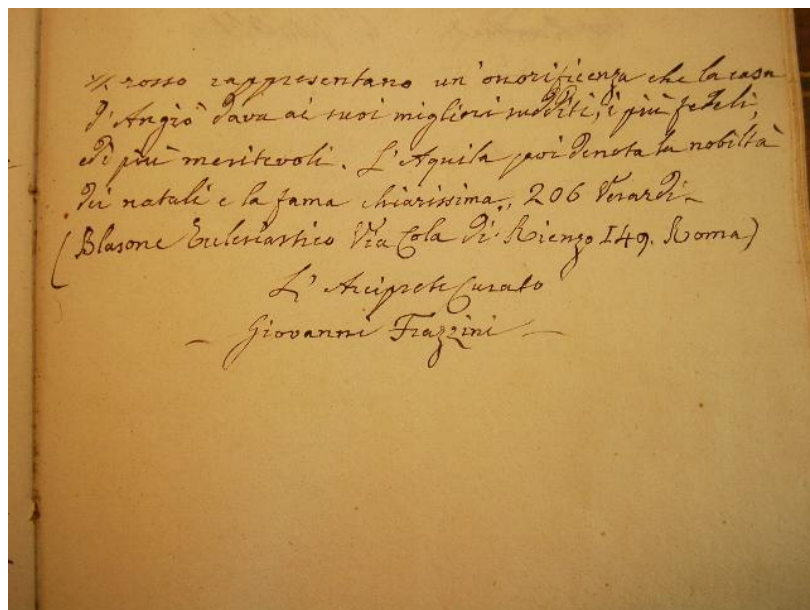 rosso rappresentano un'onorificenza che la casa
d'Angiò dava ai suoi migliori sudditi, i più fedeli,
ed i più meritevoli. L'Aquila poi denota la nobiltà
dei natali e la fama chiarissima, 206 Verardi-
(Blasone Eclesiastico Via Cola di Rienzo 149. Roma)
L'Arciprete Curato
- Giovanni Frazzini -